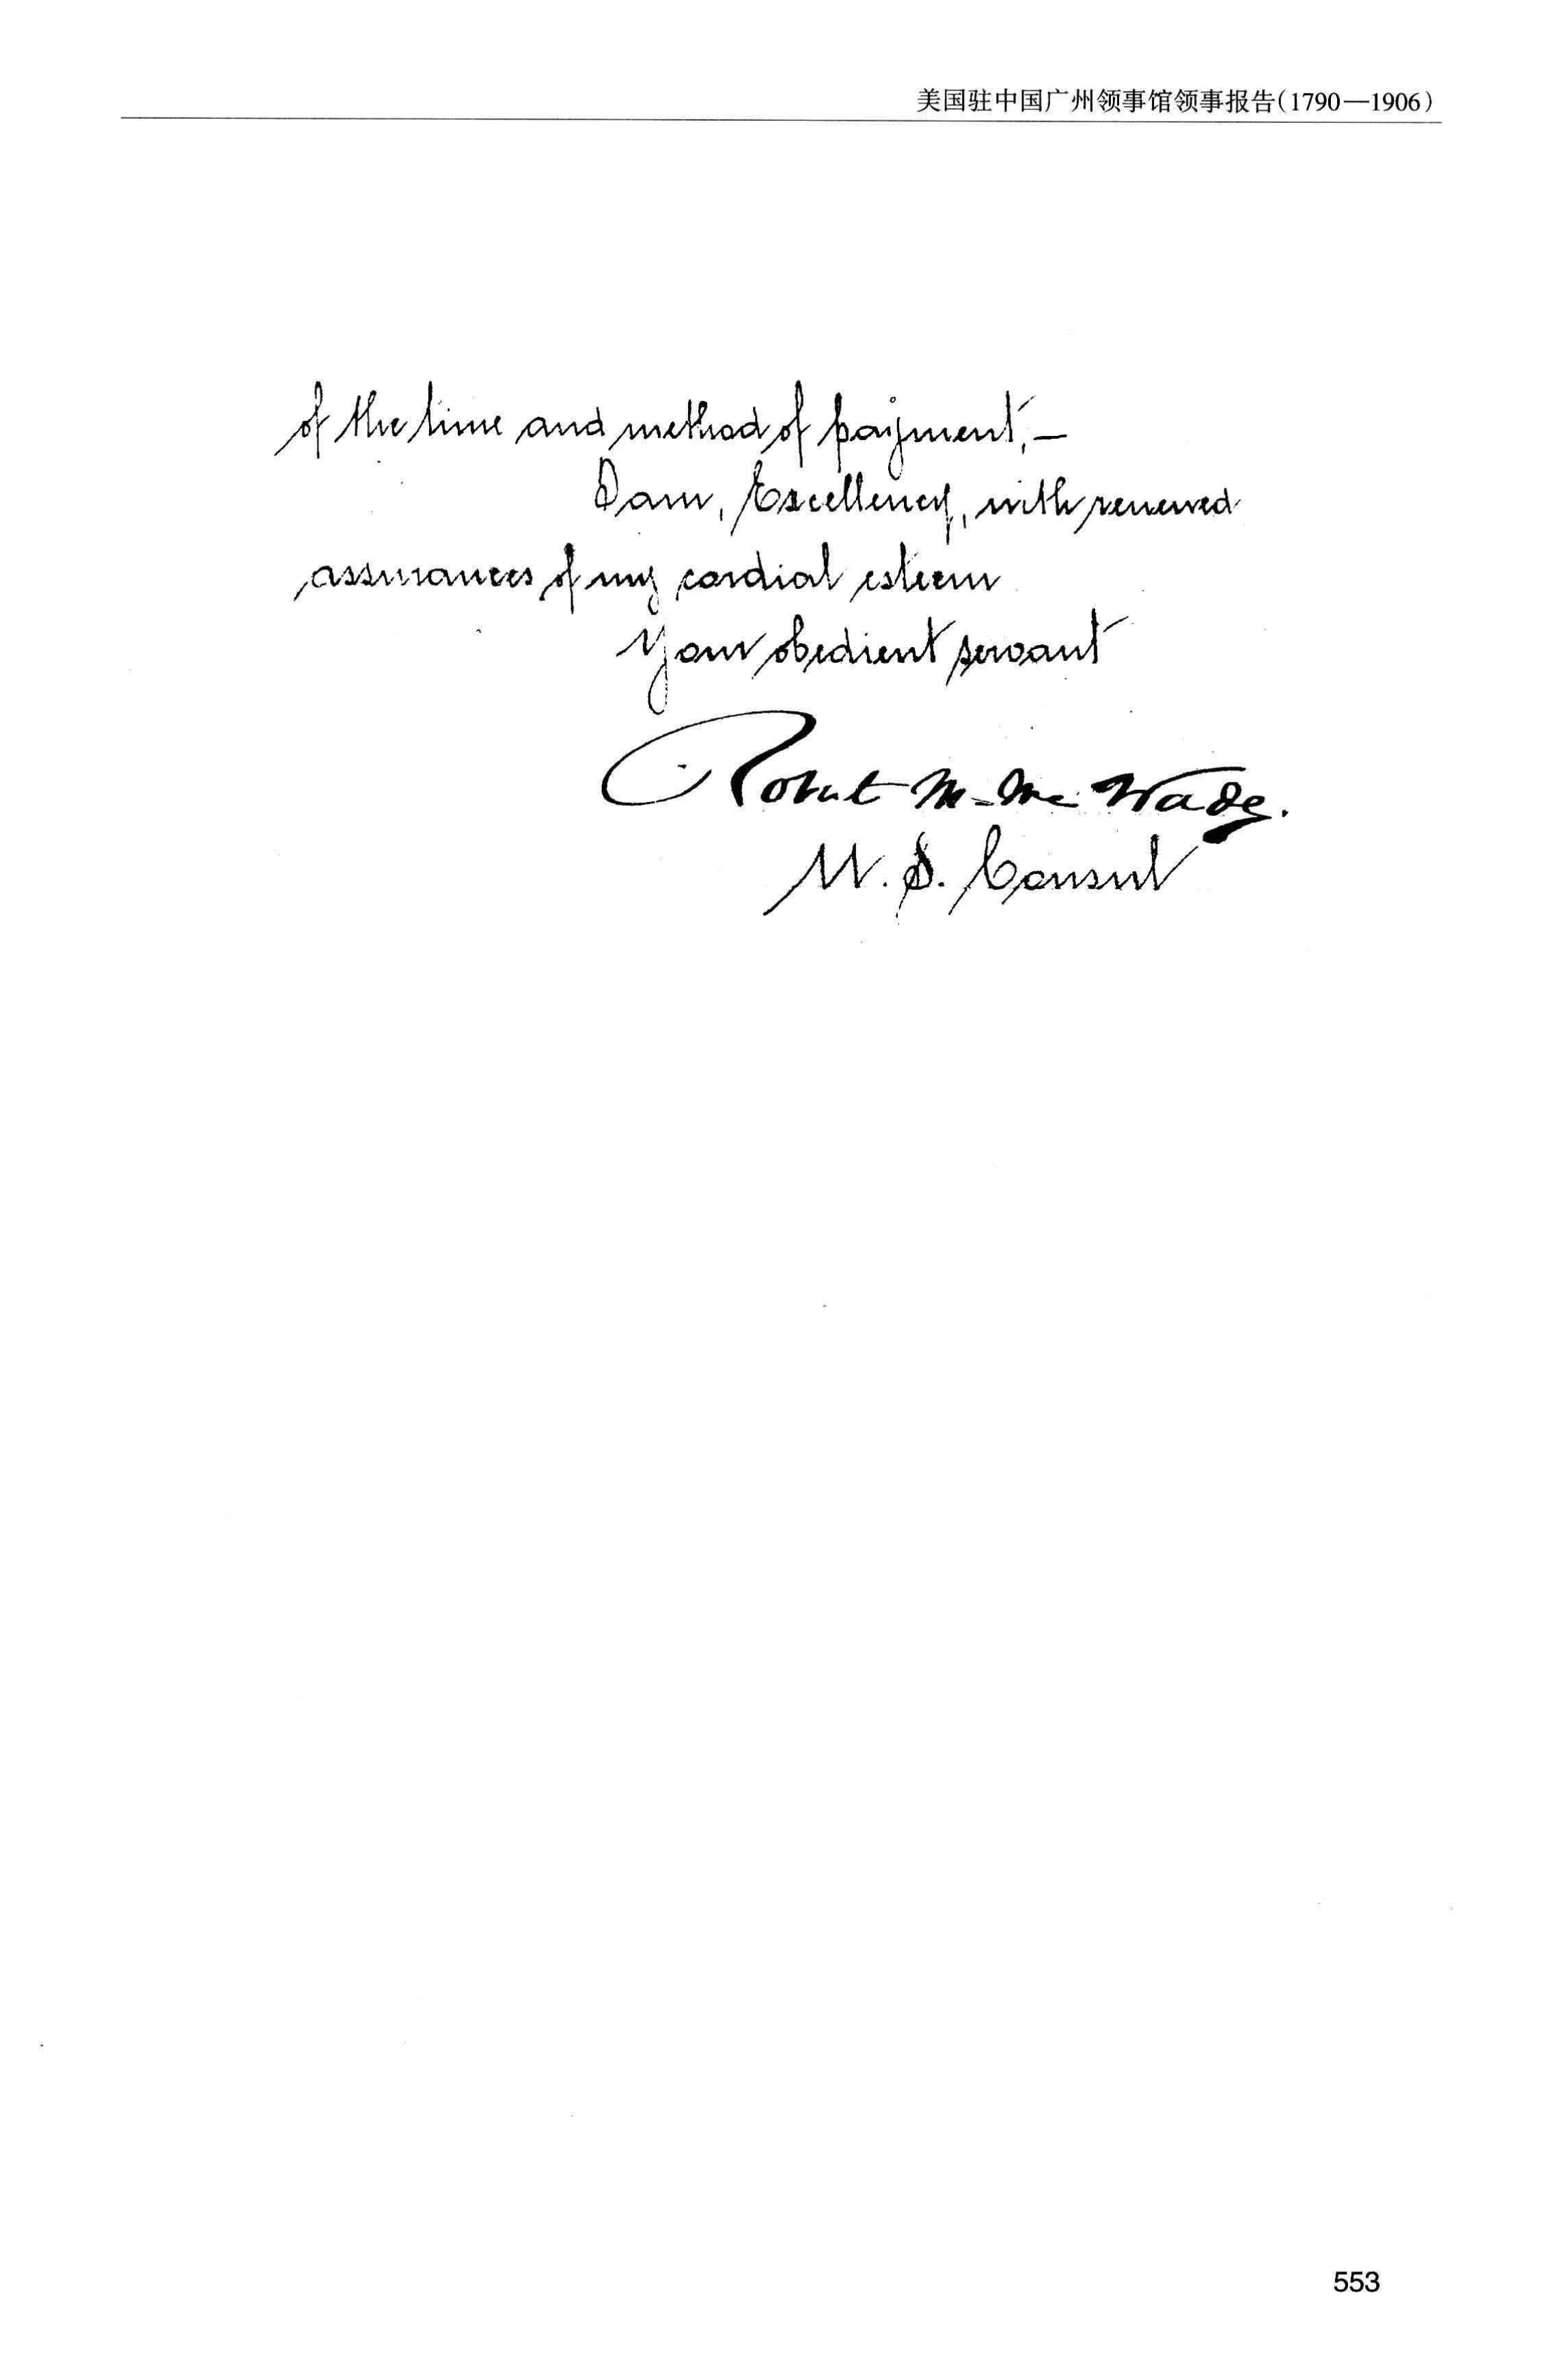 美国驻中国广州领事馆领事报告(1790—1906)
of the time and method of payment,—
I am, Excellency, with renewed
assurances of my cordial esteem
Your obedient servant
Robert M. McWade.
U. S. Consul
553